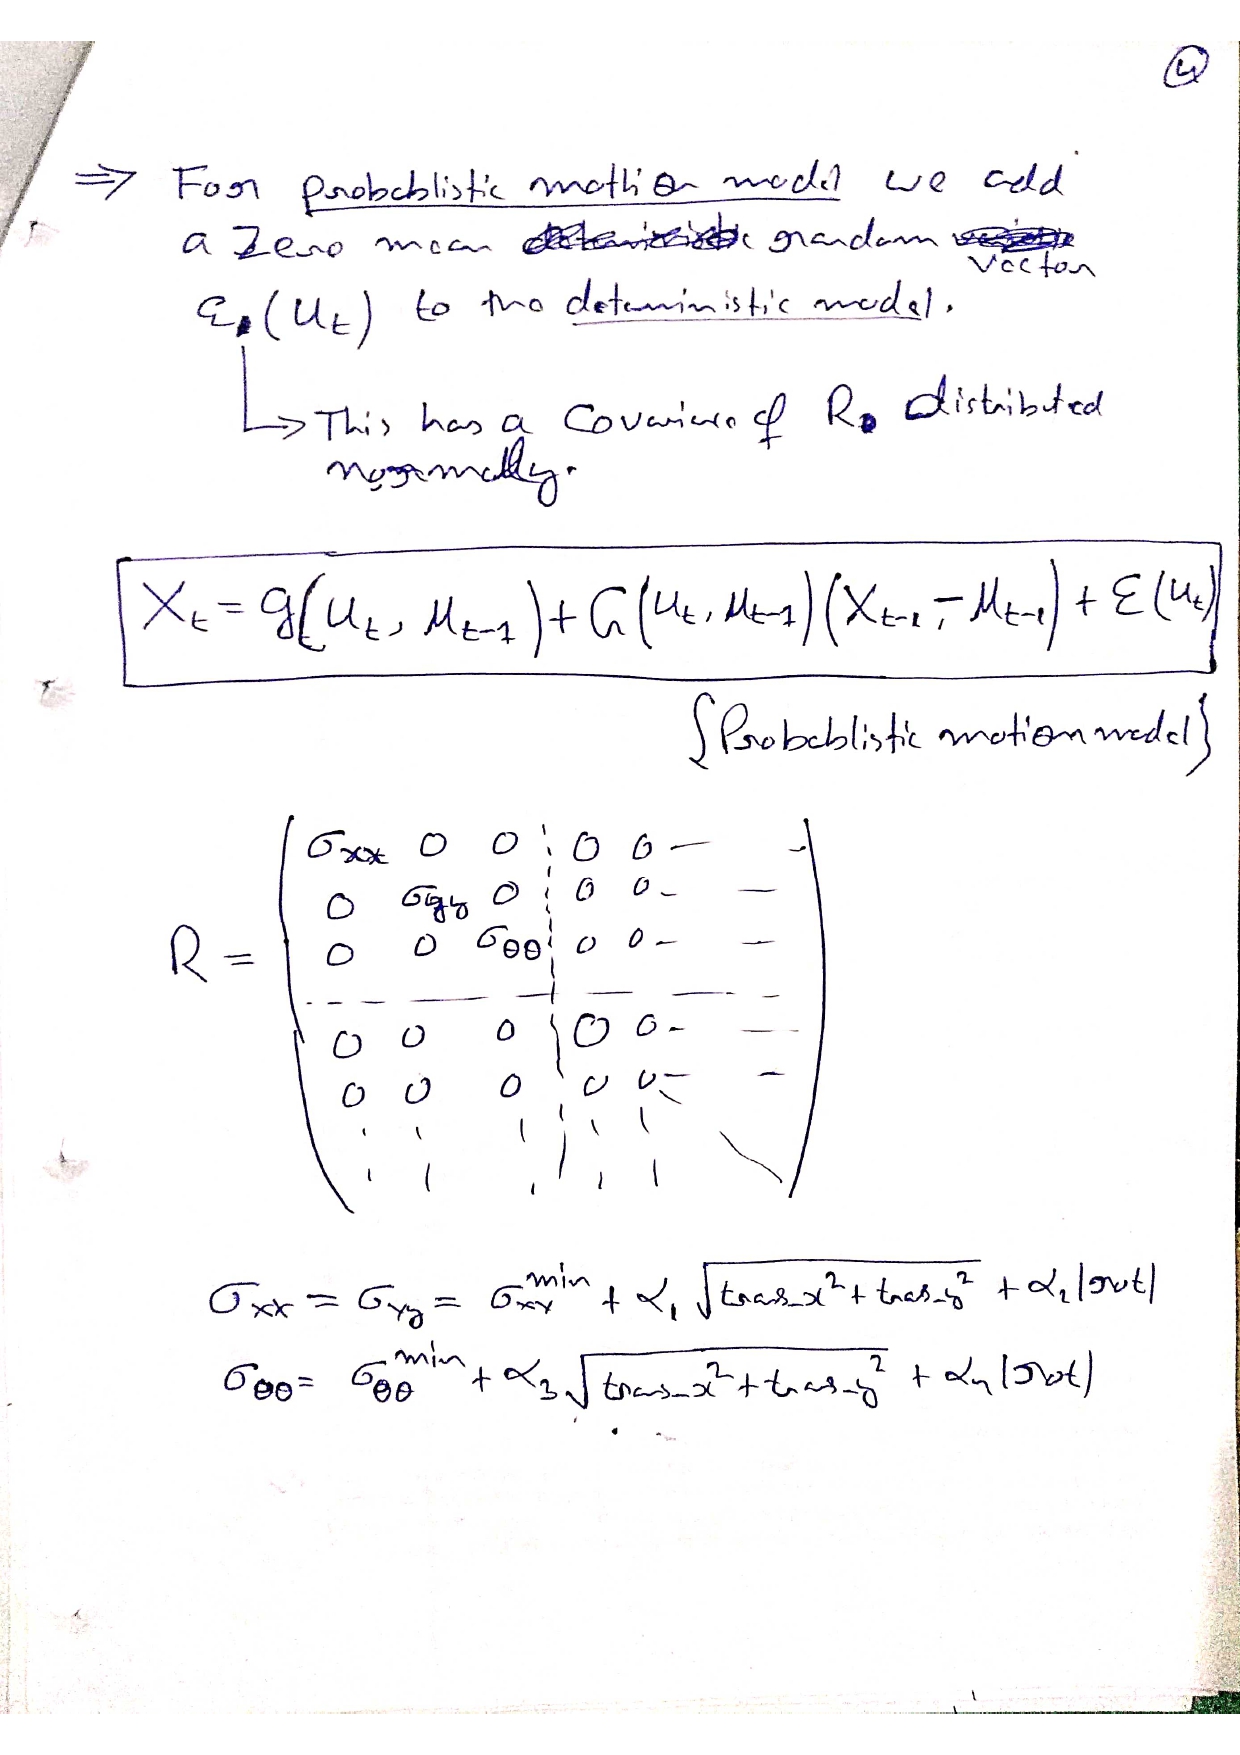 4
⇒ For probablistic mothion model we add
a zero mean random vector
ε(u_t) to the deterministic model.
↳ This has a Covariance of R distributed
normally.
X_t = g(u_t, μ_{t-1}) + G(u_t, μ_{t-1})(X_{t-1} - μ_{t-1}) + ε(u_t)
{Probablistic motion model}
σ_xx 0 0 ¦ 0 0 — -
0 σ_yy 0 ¦ 0 0 - —
R = 0 0 σ_θθ ¦ 0 0 - —
0 0 0 ¦ 0 0 - —
0 0 0 ¦ 0 0 - -
σ_xx = σ_yy = σ_xy^min + α_1 √(tras_x² + tras_y²) + α_2 |rot|
σ_θθ = σ_θθ^min + α_3 √(tras_x² + tras_y²) + α_4 |rot|